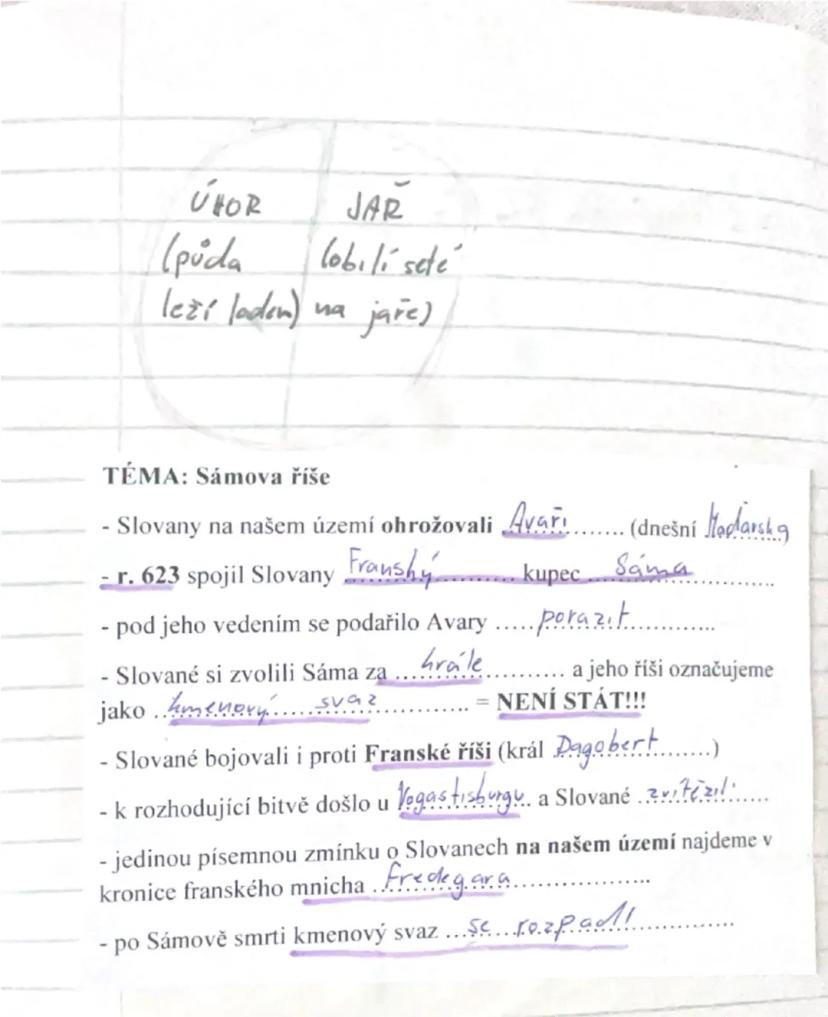 ÚHOR JAŘ
(půda (obilí seté
leží ladem) na jaře)
TÉMA: Sámova říše
- Slovany na našem území ohrožovali Avaři (dnešní Maďarsko
- r. 623 spojil Slovany Franský kupec Sáma
- pod jeho vedením se podařilo Avary porazit
- Slované si zvolili Sáma za krále a jeho říši označujeme
jako kmenový svaz = NENÍ STÁT!!!
- Slované bojovali i proti Franské říši (král Dagobert)
- k rozhodující bitvě došlo u Vogastisburgu a Slované zvítězili
- jedinou písemnou zmínku o Slovanech na našem území najdeme v
kronice franského mnicha Fredegara
- po Sámově smrti kmenový svaz se rozpadl